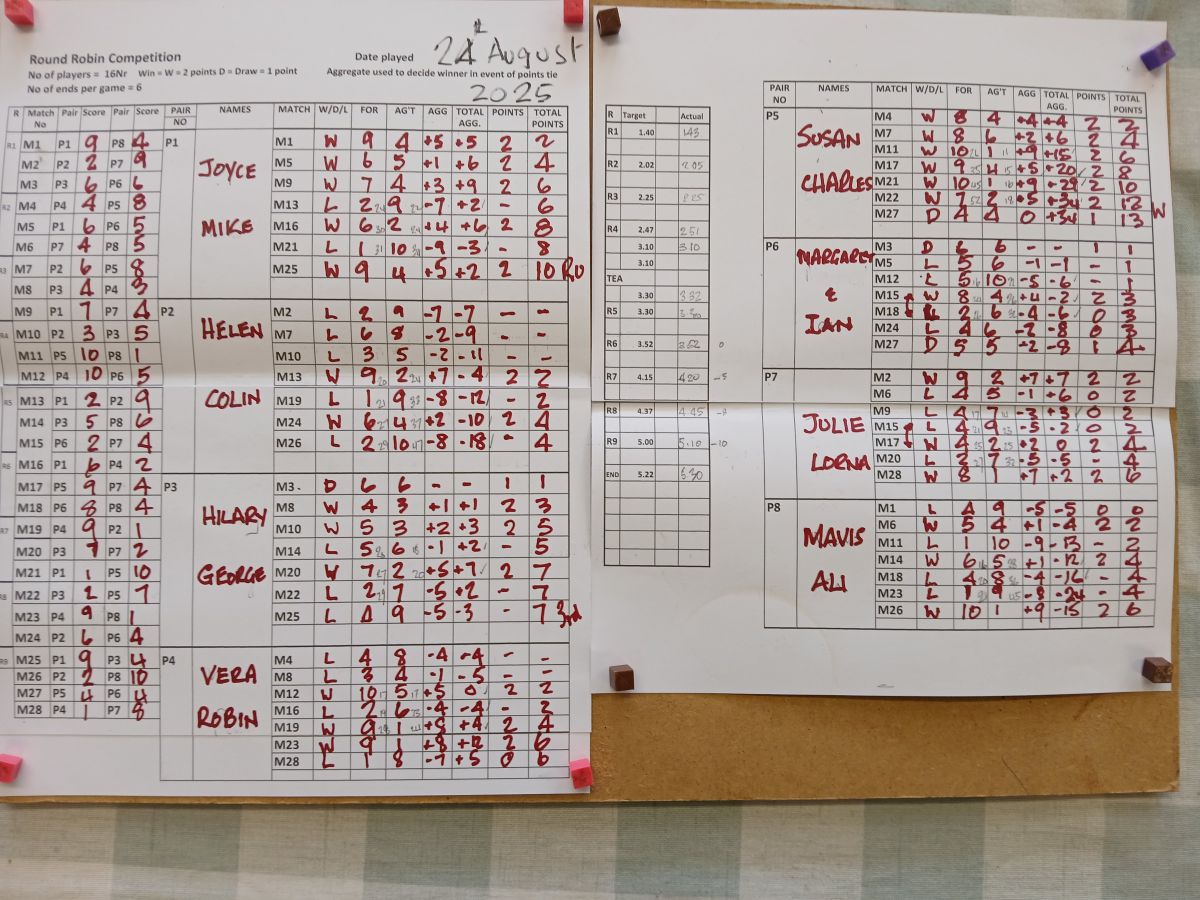 Round Robin Competition
Date played 24th August 2025
No of players = 16Nr Win = W = 2 points D = Draw = 1 point
Aggregate used to decide winner in event of points tie
No of ends per game = 6
R Match No Pair Score Pair Score
R1 M1 P1 9 P8 4
M2 P2 2 P7 9
M3 P3 6 P6 6
R2 M4 P4 4 P5 8
M5 P1 6 P6 5
M6 P7 4 P8 5
R3 M7 P2 6 P5 8
M8 P3 4 P4 3
M9 P1 7 P7 4
R4 M10 P2 3 P3 5
M11 P5 10 P8 1
M12 P4 10 P6 5
R5 M13 P1 2 P2 9
M14 P3 5 P8 6
M15 P6 2 P7 4
R6 M16 P1 6 P4 2
M17 P5 9 P7 4
M18 P6 8 P8 4
R7 M19 P4 9 P2 1
M20 P3 7 P7 2
M21 P1 1 P5 10
R8 M22 P3 2 P5 7
M23 P4 9 P8 1
M24 P2 6 P6 4
R9 M25 P1 9 P3 4
M26 P2 2 P8 10
M27 P5 4 P6 4
M28 P4 1 P7 8
PAIR NO NAMES MATCH W/D/L FOR AG'T AGG TOTAL AGG. POINTS TOTAL POINTS
P1 JOYCE MIKE
M1 W 9 4 +5 +5 2 2
M5 W 6 5 +1 +6 2 4
M9 W 7 4 +3 +9 2 6
M13 L 2 9 -7 +2 - 6
M16 W 6 2 +4 +6 2 8
M21 L 1 10 -9 -3 - 8
M25 W 9 4 +5 +2 2 10 RU
P2 HELEN COLIN
M2 L 2 9 -7 -7 - -
M7 L 6 8 -2 -9 - -
M10 L 3 5 -2 -11 - -
M13 W 9 2 +7 -4 2 2
M19 L 1 9 -8 -12 - 2
M24 W 6 4 +2 -10 2 4
M26 L 2 10 -8 -18 - 4
P3 HILARY GEORGE
M3 D 6 6 - - 1 1
M8 W 4 3 +1 +1 2 3
M10 W 5 3 +2 +3 2 5
M14 L 5 6 -1 +2 - 5
M20 W 7 2 +5 +7 2 7
M22 L 2 7 -5 +2 - 7
M25 L 4 9 -5 -3 - 7 3rd
P4 VERA ROBIN
M4 L 4 8 -4 -4 - -
M8 L 3 4 -1 -5 - -
M12 W 10 5 +5 0 2 2
M16 L 2 6 -4 -4 - 2
M19 W 9 1 +8 +4 2 4
M23 W 9 1 +8 +12 2 6
M28 L 1 8 -7 +5 0 6
R Target Actual
R1 1.40 1.43
R2 2.02 2.05
R3 2.25
R4 2.47 2.51
3.10 3.10
3.10
TEA
3.30 3.32
R5 3.30 3.30
R6 3.52 3.52 0
R7 4.15 4.20 -5
R8 4.37 4.45 -8
R9 5.00 5.10 -10
END 5.22 5.30
PAIR NO NAMES MATCH W/D/L FOR AG'T AGG TOTAL AGG. POINTS TOTAL POINTS
P5 SUSAN CHARLES
M4 W 8 4 +4 +4 2 2
M7 W 8 6 +2 +6 2 4
M11 W 10 1 +9 +15 2 6
M17 W 9 4 +5 +20 2 8
M21 W 10 1 +9 +29 2 10
M22 W 7 2 +5 +34 2 12
M27 D 4 4 0 +34 1 13 W
P6 MARGARET & IAN
M3 D 6 6 - - 1 1
M5 L 5 6 -1 -1 - 1
M12 L 5 10 -5 -6 - 1
M15 W 8 4 +4 -2 2 3
M18 L 2 6 -4 -6 0 3
M24 L 4 6 -2 -8 0 3
M27 D 5 5 +2 -8 1 4
P7 JULIE LORNA
M2 W 9 2 +7 +7 2 2
M6 L 4 5 -1 +6 0 2
M9 L 4 7 -3 +3 0 2
M15 L 4 9 -5 -2 0 2
M17 W 4 2 +2 0 2 4
M20 L 2 7 -5 -5 - 4
M28 W 8 1 +7 +2 2 6
P8 MAVIS ALI
M1 L 4 9 -5 -5 0 0
M6 W 5 4 +1 -4 2 2
M11 L 1 10 -9 -13 - 2
M14 W 6 5 +1 -12 2 4
M18 L 4 8 -4 -16 - 4
M23 L 1 9 -8 -24 - 4
M26 W 10 1 +9 -15 2 6